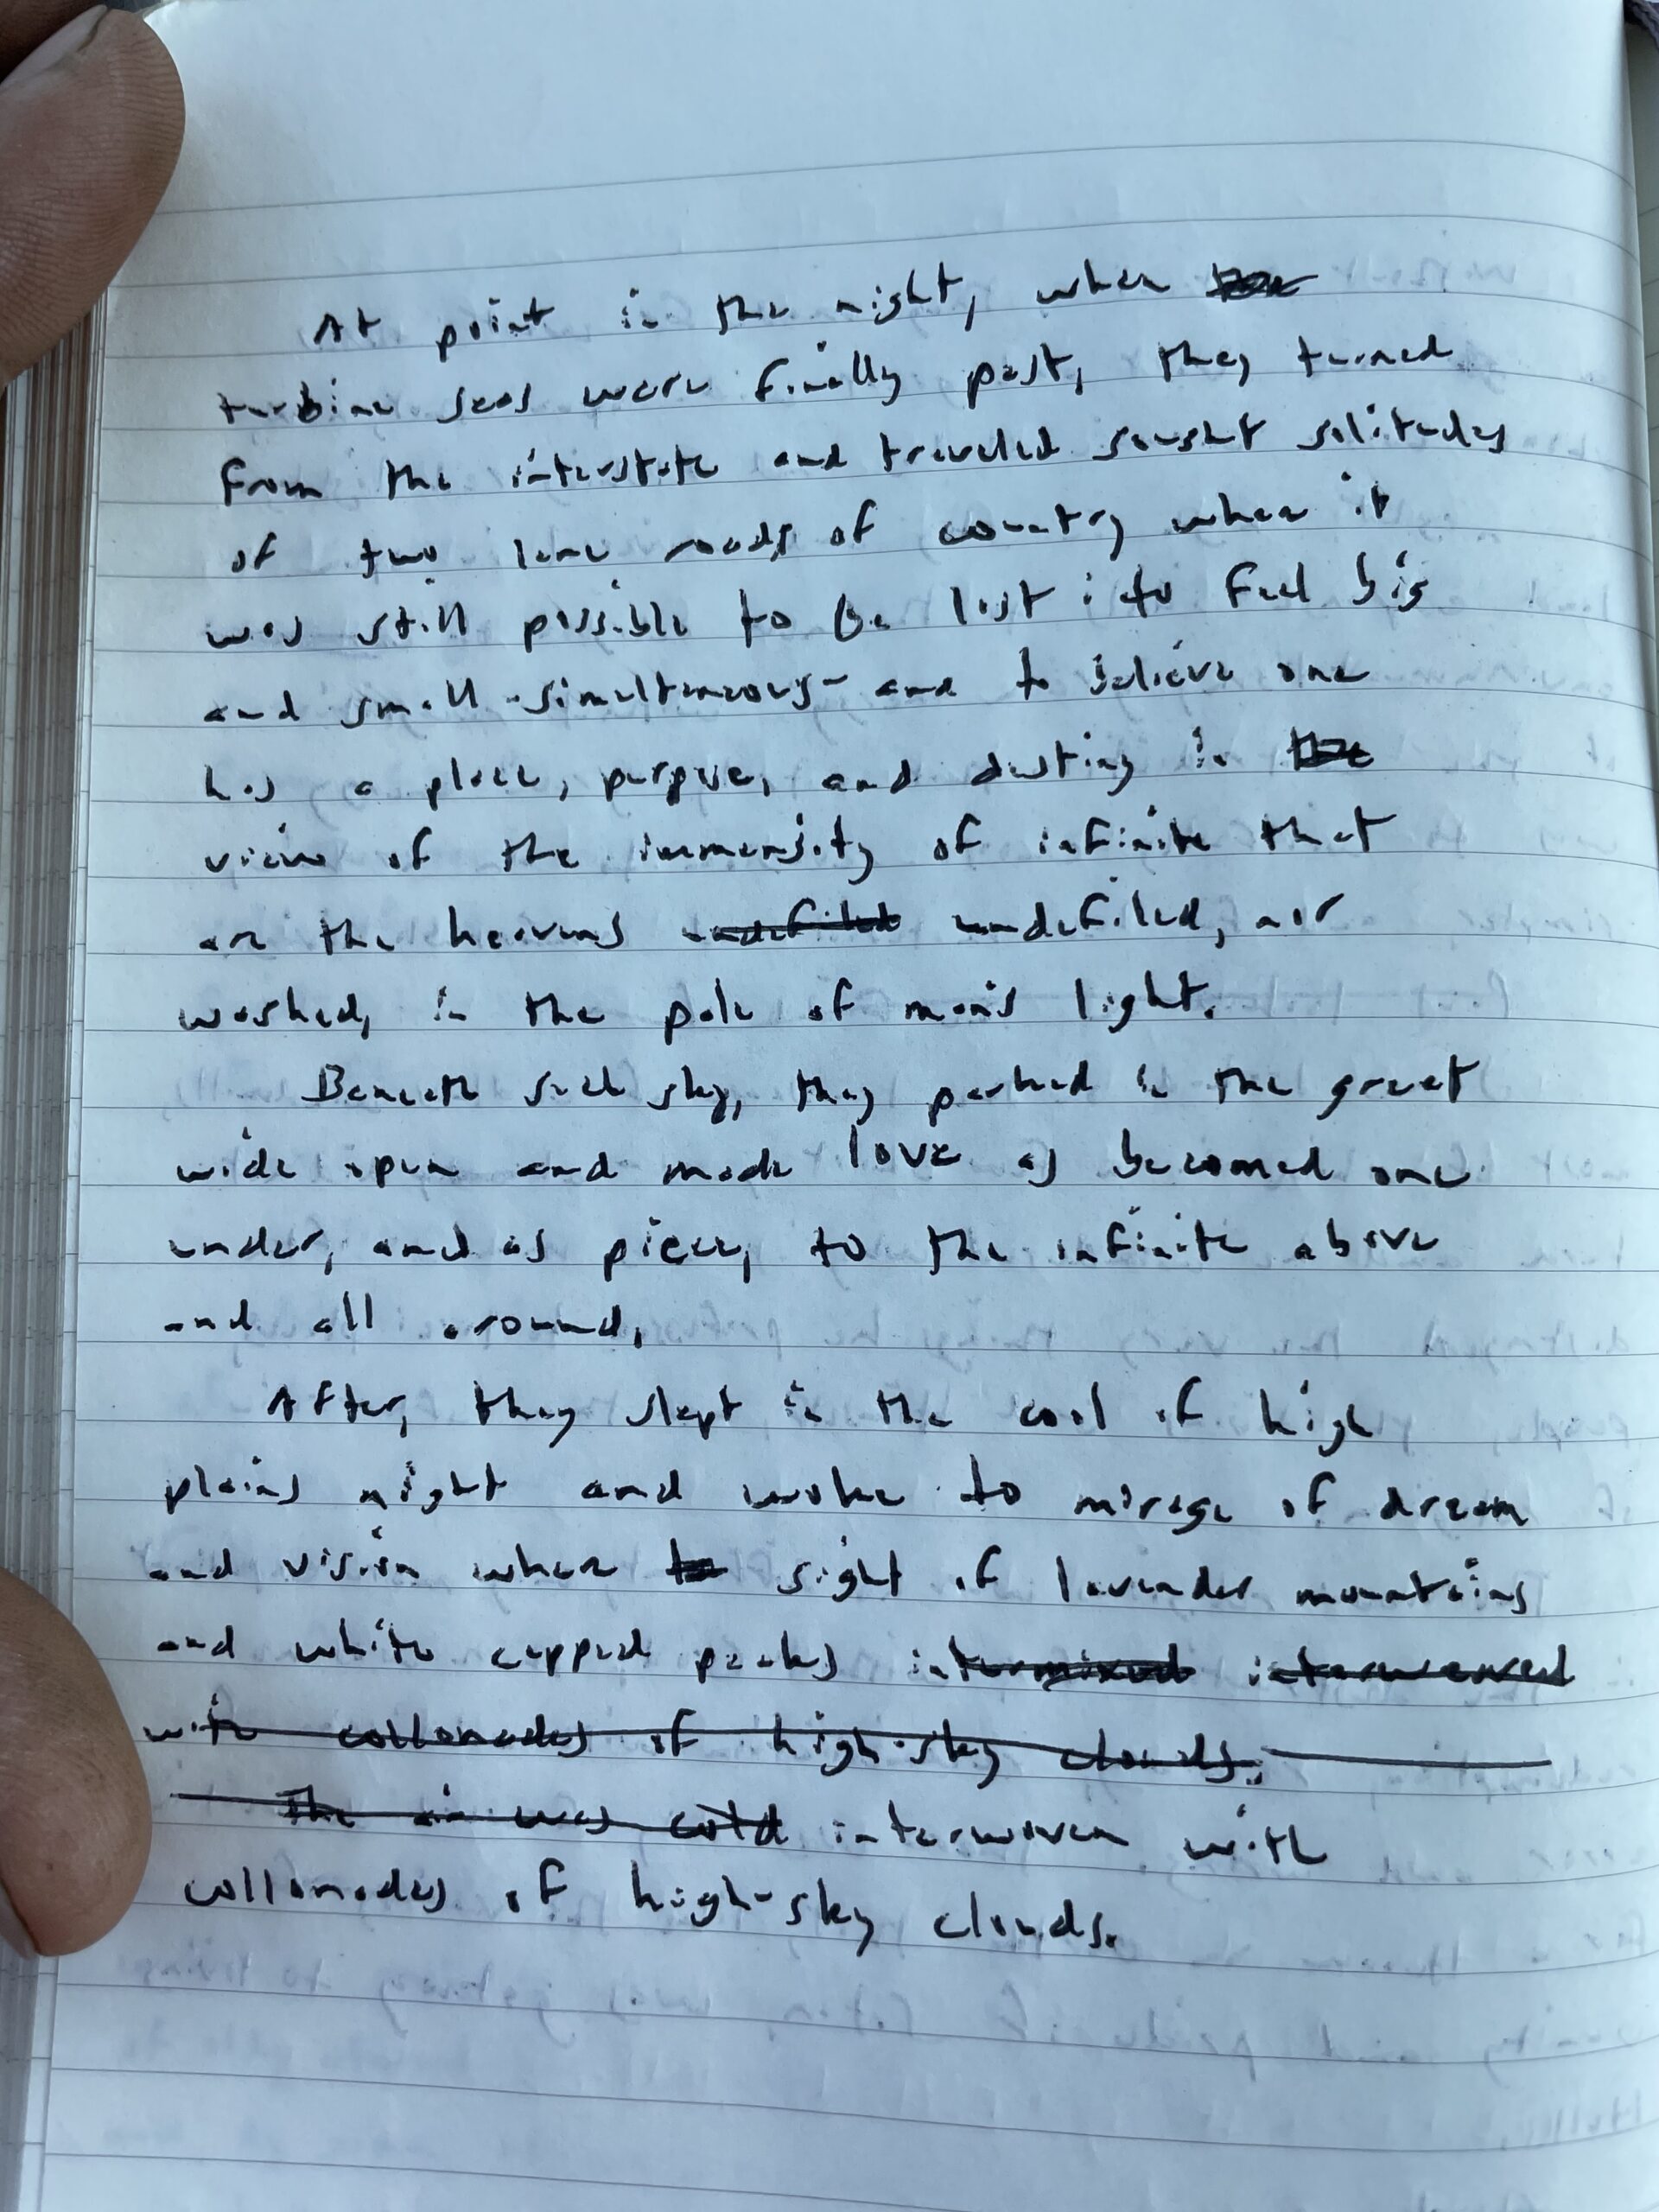 At point in the night, when
turbine seas were finally past, they turned
from the interstate and traveled sought solitudes
of two lane roads of country where it
was still possible to be lost : to feel big
and small simultaneously - and to believe one
has a place, purpose, and destiny in the
view of the immensity of infinite that
are the heavens undefiled undefiled, air
washed, in the pale of moon's light.
Beneath such sky, they parked in the great
wide open and made love as becomed one
under, and as piece, to the infinite above
and all around.
After, they slept in the cool of high
plains night and woke to mirage of dream
and vision where to sight of lavender mountains
and white capped peaks intermixed interweaved
with collonades of high-sky clouds.
The air was cold interwoven with
collonades of high-sky clouds.